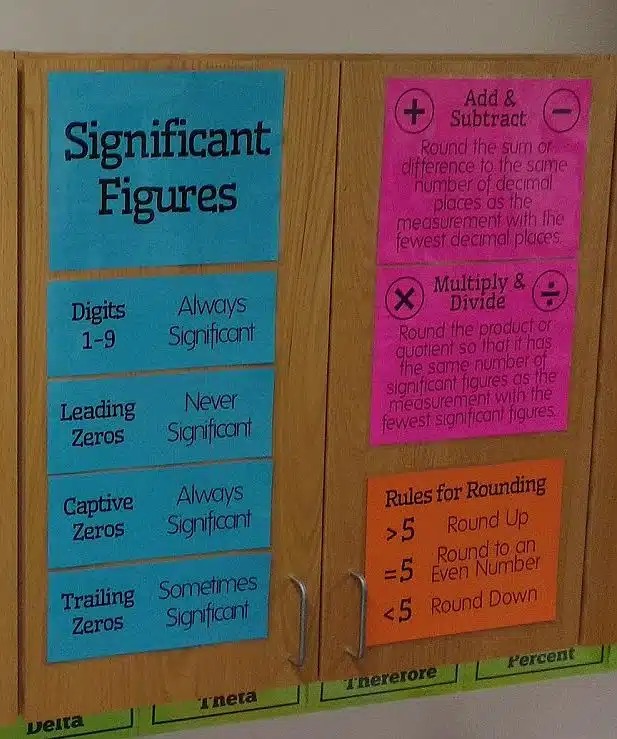 Significant
Figures
Digits
1-9
Always
Significant
Leading
Zeros
Never
Significant
Captive
Zeros
Always
Significant
Trailing
Zeros
Sometimes
Significant
+
Add &
Subtract
−
Round the sum or
difference to the same
number of decimal
places as the
measurement with the
fewest decimal places.
×
Multiply &
Divide
÷
Round the product or
quotient so that it has
the same number of
significant figures as the
measurement with the
fewest significant figures.
Rules for Rounding
>5 Round Up
=5 Round to an
Even Number
<5 Round Down
Delta
Theta
Therefore
Percent